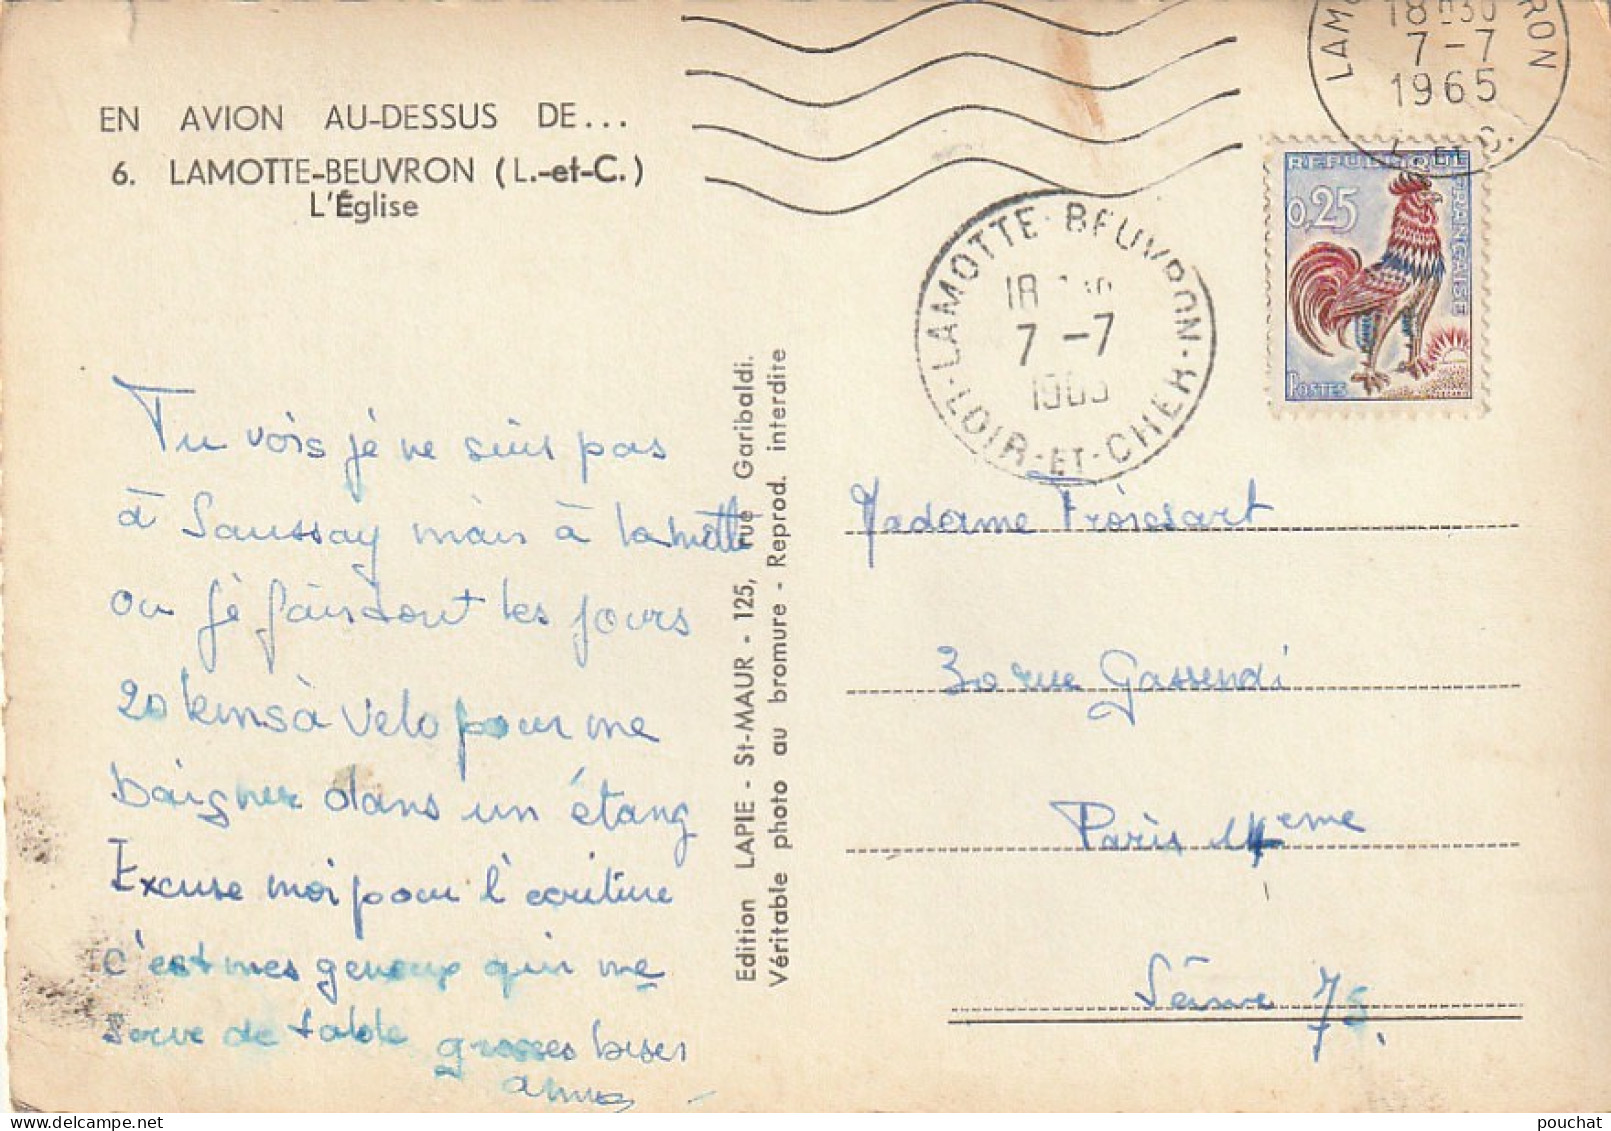 EN AVION AU-DESSUS DE...
6. LAMOTTE-BEUVRON (L.-et-C.)
L'Église
Tu vois jé ne suis pas
à Saussay mais à lamotte
ou jé fais tout les jours
20 kms à velo pour me
baigner dans un étang
Excuse moi pour l'écriture
c'est mes genoux qui me
serve de table grosses bises
Edition LAPIE - St-MAUR - 125, rue Garibaldi.
Véritable photo au bromure - Reprod. interdite
LAMOTTE-BEUVRON
18 30
7-7
1965
-LOIR-ET-CHER-
18H30
7-7
1965
L. ET C.
REPUBLIQUE FRANÇAISE
0,25
POSTES
Madame Froissart
30 rue Gassendi
Paris 14eme
Seine 75.
pouchat